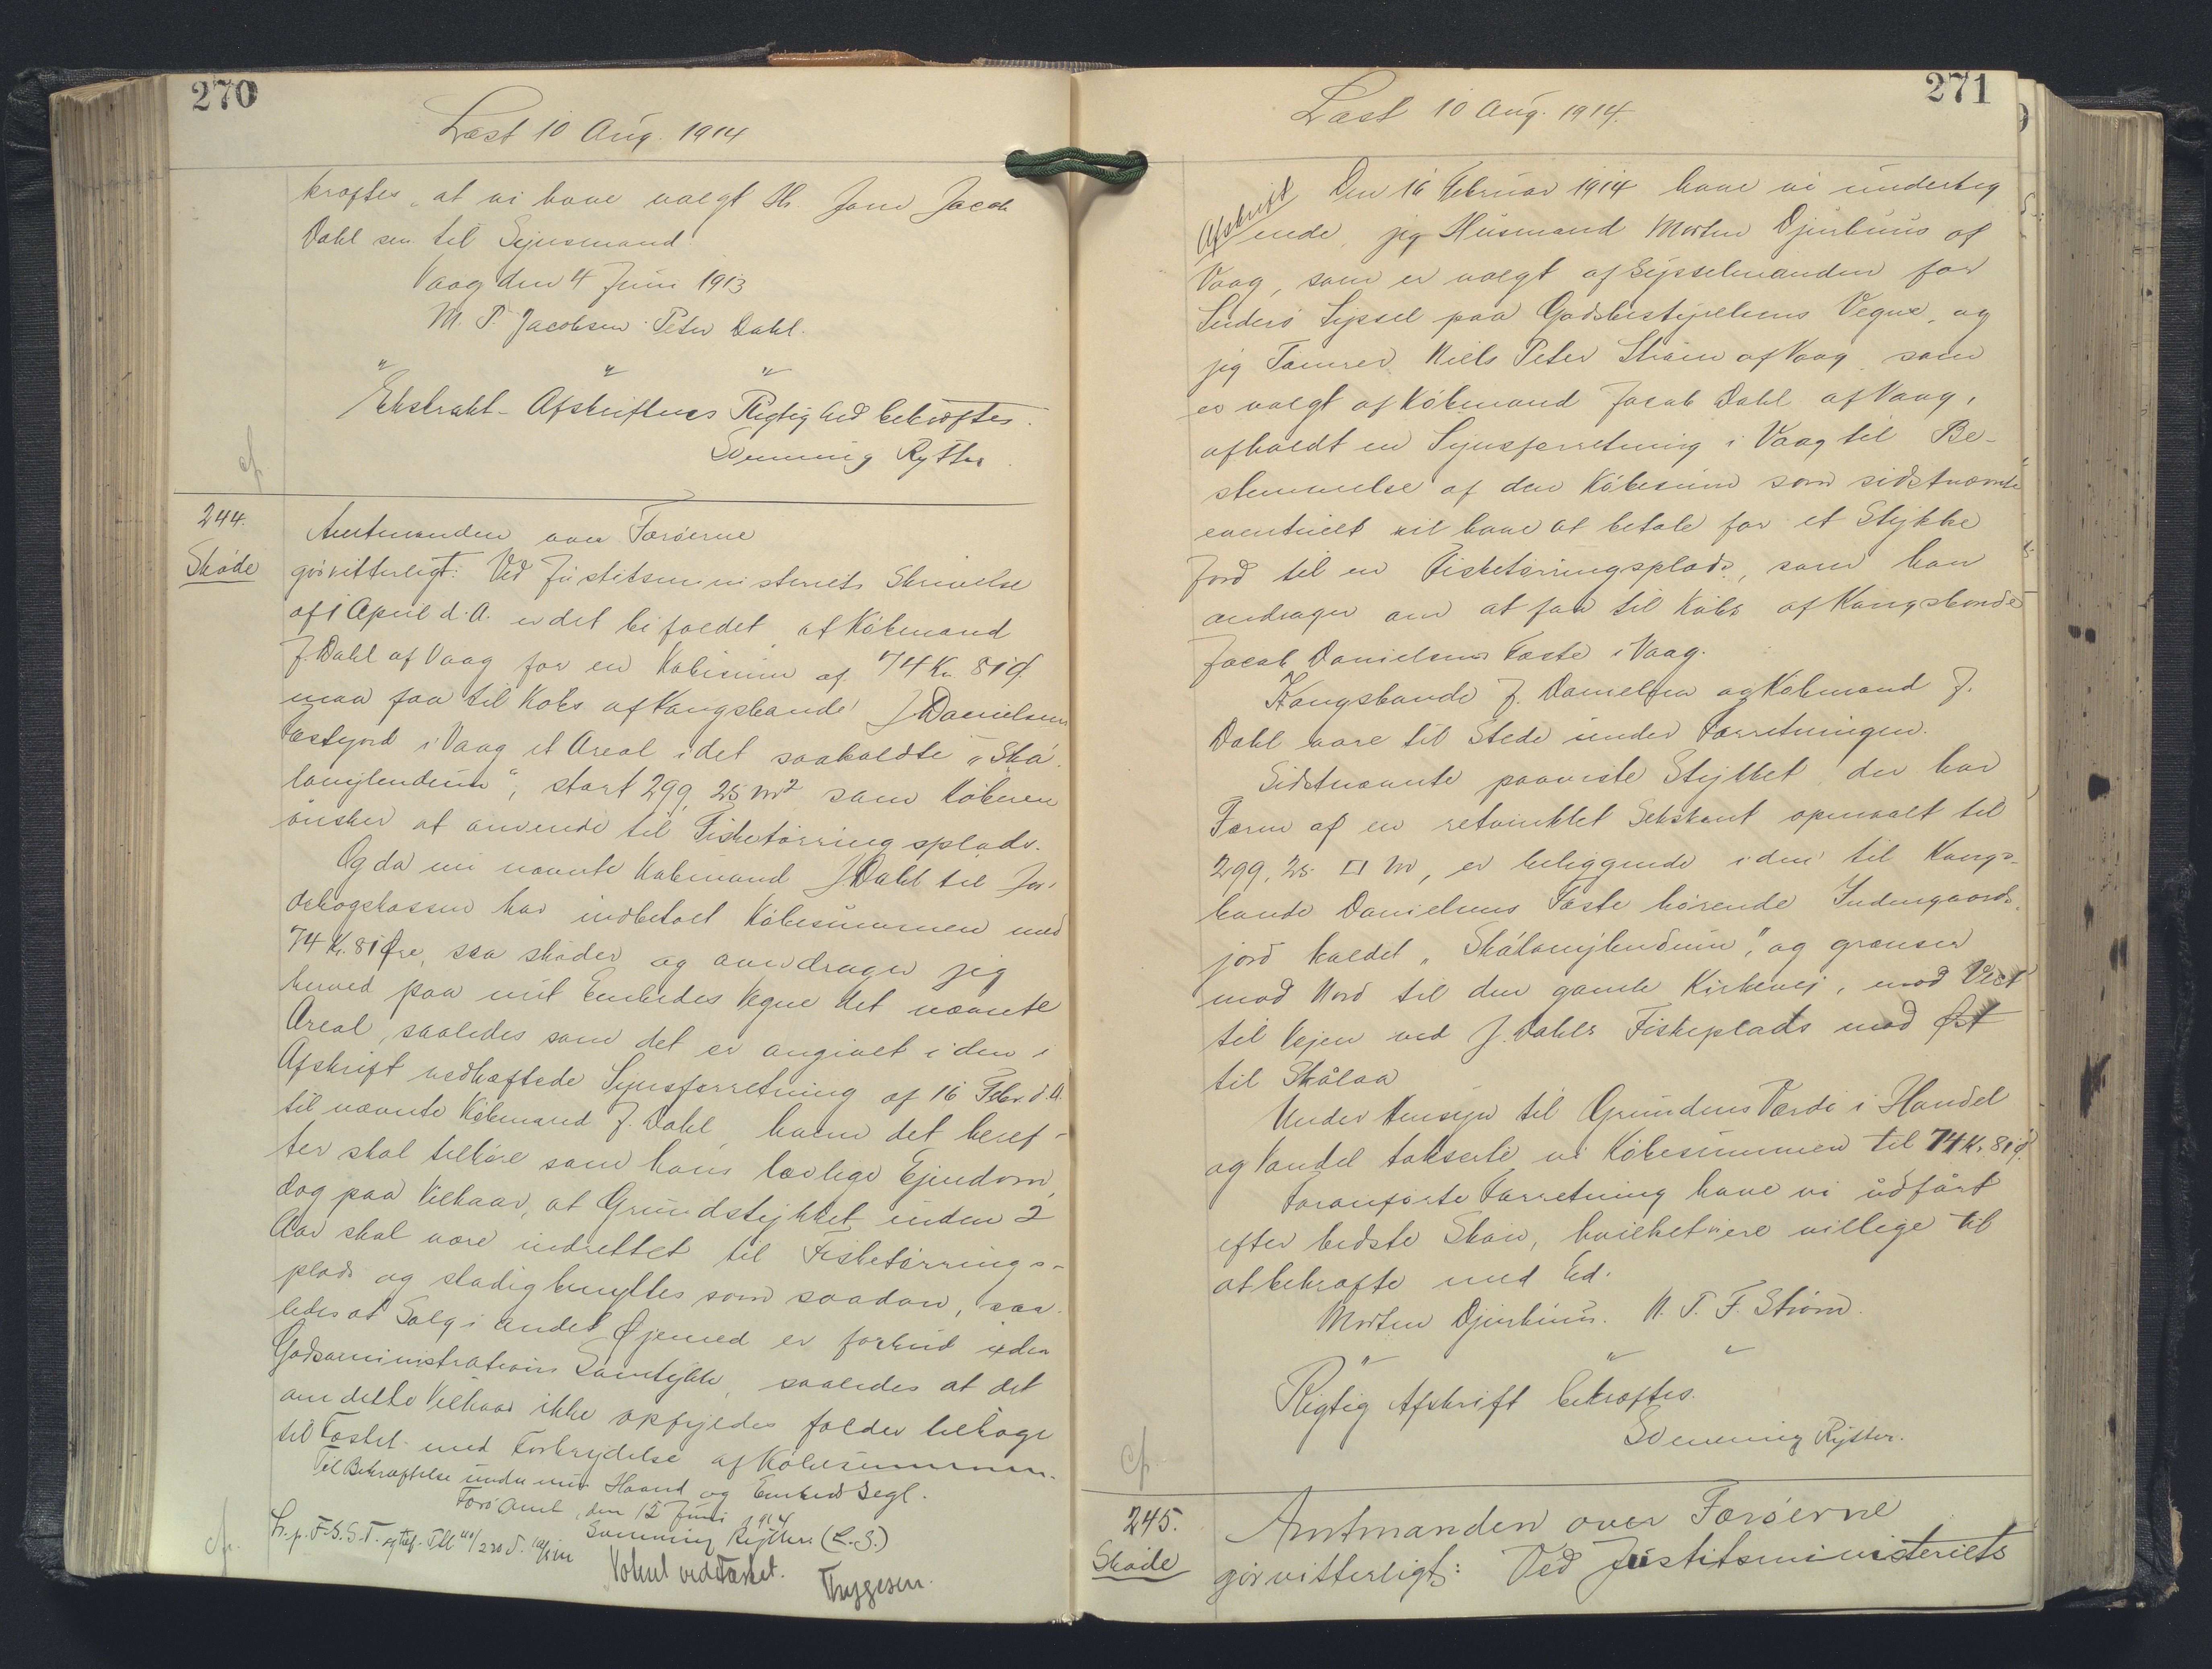 270
Læst 10 Aug. 1914
kræftes, at vi have valgt Hr. Jens Jacob
Dahl sen. til Synsmand.
Vaag den 4 Juni 1913
M. P. Jacobsen Peter Dahl.
" " "
Ekstrakt-Afskriftens Rigtighed bekræftes.
Svenning Rytter.
cf.
244.
Skøde
Amtmanden over Færøerne
gør vitterligt: Ved Justitsministeriets Skrivelse
af 1 April d. A. er det bifaldet at Købmand
J. Dahl af Vaag for en Købesum af 74 Kr. 81 Ø.
maa faa til Købs af Kongsbonde J. Danielsens
Fæstejord i Vaag et Areal i det saakaldte "Ská-
lanylendum", stort 299,25 m² som Køberen
ønsker at anvende til Fisketørringsplads.
Og da nu nævnte Købmand J Dahl til Jor-
debogskassen har indbetalt Købesummen med
74 Kr. 81 Øre, saa skøder og overdrager jeg
herved paa mit Embedes Vegne det nævnte
Areal, saaledes som det er angivet i den i
Afskrift vedhæftede Synsforretning af 16 Febr. d. A.
til nævnte Købmand J. Dahl, hvem det heref-
ter skal tilhøre som hans lovlige Ejendom,
dog paa Vilkaar, at Grundstykket inden 2
Aar skal være indrettet til Fisketørrings-
plads og stadig benyttes som saadan, saa-
ledes at Salg i andet Øjemed er forbud uden
Godsadministrations Samtykke, saaledes at det
om dette Vilkaar ikke opfyldes falder tilbage
til Fæstet med Fortrydelse af Købesummen.
Til Bekræftelse under min Haand og Embeds Segl.
Færø Amt, den 15 Juni 1914
Svenning Rytter (L. S.)
cf.
Noteret ved Fæstet.
Thygesen.
271
Læst 10 Aug. 1914.
Afskrift
Den 16 Februar 1914 have vi underteg
nede, jeg Husmand Morten Djurhuus af
Vaag, som er valgt af Sysselmanden for
Suderø Syssel paa Godsbestyrelsens Vegne, og
jeg Tømrer Niels Peter Strøm af Vaag, som
er valgt af Købmand Jacob Dahl af Vaag,
afholdt en Synsforretning i Vaag til Be-
stemmelse af den Købesum som sidstnævnte
eventuelt vil have at betale for et Stykke
Jord til en Fisketørringsplads, som han
andrager om at faa til Købs af Kongsbonde
Jacob Danielsens Fæste i Vaag.
Kongsbonde J. Danielsen og Købmand J.
Dahl vare til Stede under Forretningen.
Sidstnævnte paaviste Stykket, der har
Form af en retvinklet Sekskant opmaalt til
299,25 □ m, er beliggende i den til Kongs-
bonde Danielsens Fæste hørende Indengaards-
jord kaldet "Skálanylendum", og grænser
mod Nord til den gamle Kirkevej, mod Vest
til Vejen ved J. Dahls Fiskeplads mod Øst
til Skålaa
Under Hensyn til Grundens Værdi i Handel
og Vandel takserte vi Købesummen til 74 Kr. 81 Ø.
Foranførte Forretning have vi udført
efter bedste Skøn, hvilket vi ere villige til
at bekræfte med Ed.
Morten Djurhuus. N. P. F. Strøm.
" " "
Rigtig Afskrift bekræftes.
Svenning Rytter.
cf.
245.
Skøde
Amtmanden over Færøerne
gør vitterligt: Ved Justitsministeriets